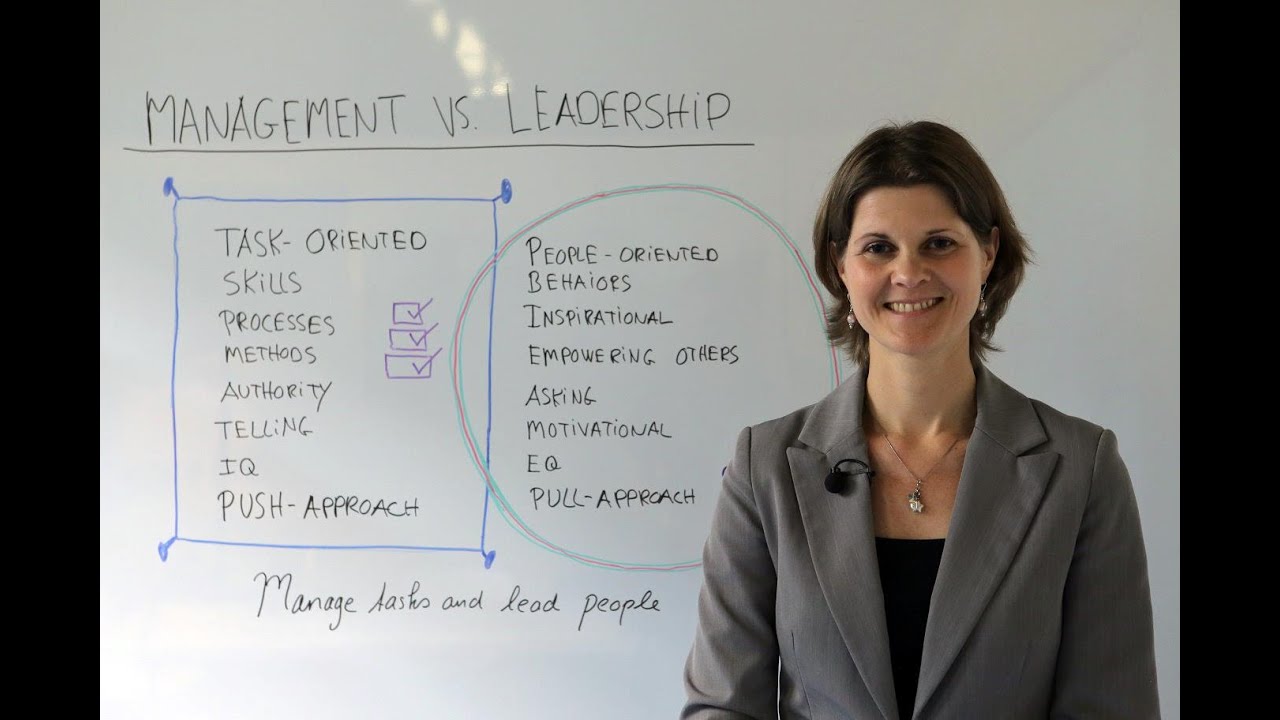 MANAGEMENT VS. LEADERSHIP
TASK-ORIENTED
SKILLS
PROCESSES
METHODS
AUTHORITY
TELLING
IQ
PUSH-APPROACH
PEOPLE-ORIENTED
BEHAIORS
INSPIRATIONAL
EMPOWERING OTHERS
ASKING
MOTIVATIONAL
EQ
PULL-APPROACH
Manage tasks and lead people